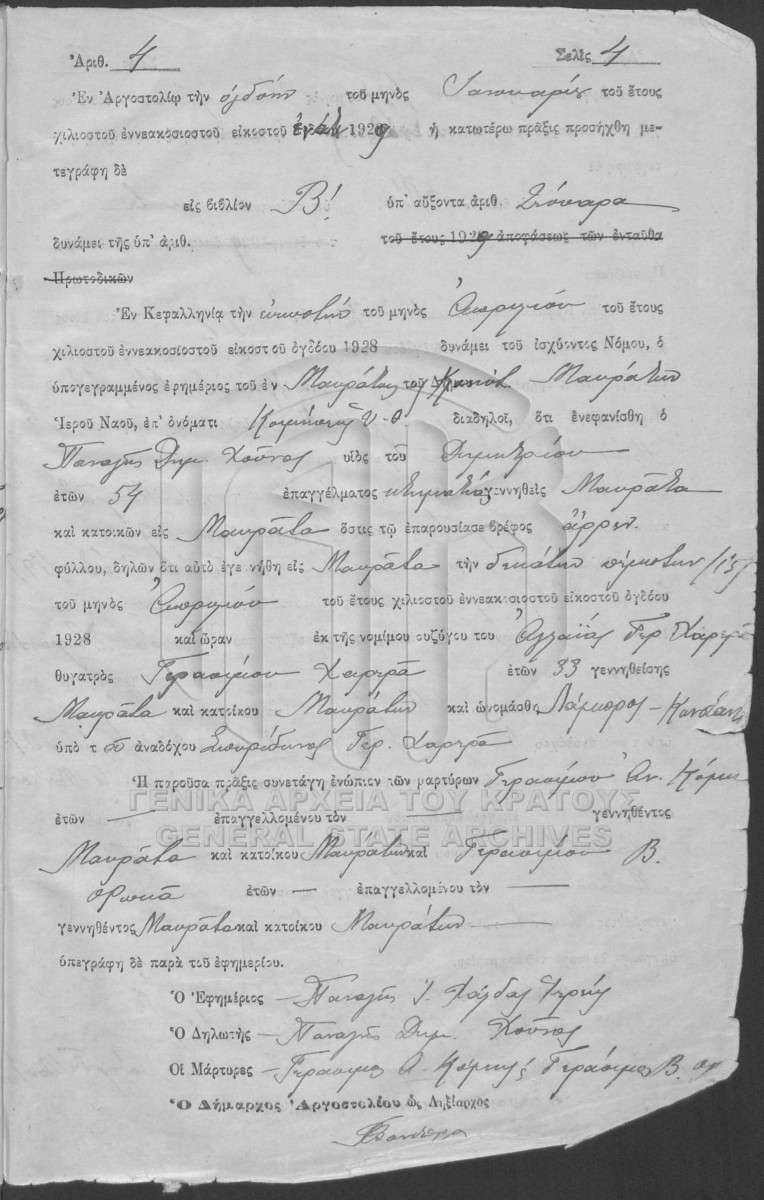 Ἀριθ. 4 Σελὶς 4
Ἐν Ἀργοστολίῳ τὴν ὀγδόην τοῦ μηνὸς Ἰανουαρίου τοῦ ἔτους
χιλιοστοῦ ἐννεακοσιοστοῦ εἰκοστοῦ 1929 ἡ κατωτέρω πρᾶξις προσήχθη με-
τεγράφη δὲ
εἰς βιβλίον Β! ὑπ' αὔξοντα ἀριθ. τέσσαρα
δυνάμει τῆς ὑπ' ἀριθ. τοῦ ἔτους 1929 ἀποφάσεως τῶν ἐνταῦθα
Πρωτοδικῶν
Ἐν Κεφαλληνίᾳ τὴν εἰκοστὴν τοῦ μηνὸς Ἀπριλίου τοῦ ἔτους
χιλιοστοῦ ἐννεακοσιοστοῦ εἰκοστοῦ ὀγδόου 1928 δυνάμει τοῦ ἰσχύοντος Νόμου, ὁ
ὑπογεγραμμένος ἐφημέριος τοῦ ἐν Μαυράτοις τοῦ Μαυράτων
Ἱεροῦ Ναοῦ, ἐπ' ὀνόματι Κοιμήσεως Υ-Θ διαδηλοῖ, ὅτι ἐνεφανίσθη ὁ
Παναγῆς Δημ. υἱὸς τοῦ Δημητρίου
ἐτῶν 54 ἐπαγγέλματος κτηματίας γεννηθεὶς Μαυράτα
καὶ κατοικῶν εἰς Μαυράτα ὅστις τῷ ἐπαρουσίασε βρέφος ἄρρεν
φύλλου, δηλῶν ὅτι αὐτὸ ἐγεννήθη εἰς Μαυράτα τὴν δεκάτην πέμπτην /15/
τοῦ μηνὸς Ἀπριλίου τοῦ ἔτους χιλιοστοῦ ἐννεακοσιοστοῦ εἰκοστοῦ ὀγδόου
1928 καὶ ὥραν ἐκ τῆς νομίμου συζύγου του Ἀγλαΐας Γερ.
θυγατρὸς Γερασίμου ἐτῶν 33 γεννηθείσης
Μαυράτα καὶ κατοίκου Μαυράτων καὶ ὠνομάσθη Λάμπρος –
ὑπὸ τοῦ ἀναδόχου Σπυρίδωνος Γερ.
Ἡ παροῦσα πρᾶξις συνετάγη ἐνώπιον τῶν μαρτύρων Γερασίμου Ἀν.
ἐτῶν — ἐπαγγελλομένου τὸν — γεννηθέντος
Μαυράτα καὶ κατοίκου Μαυράτων καὶ Γερασίμου Β.
ἐτῶν — ἐπαγγελλομένου τὸν —
γεννηθέντος Μαυράτα καὶ κατοίκου Μαυράτων —
ὑπεγράφη δὲ παρὰ τοῦ ἐφημερίου.
Ὁ Ἐφημέριος – Παναγῆς
Ὁ Δηλωτὴς – Παναγῆς Δημ.
Οἱ Μάρτυρες – Γεράσιμος Α. Γεράσιμος Β.
Ὁ Δήμαρχος Ἀργοστολίου ὡς Ληξίαρχος
ΓΕΝΙΚΑ ΑΡΧΕΙΑ ΤΟΥ ΚΡΑΤΟΥΣ
GENERAL STATE ARCHIVES